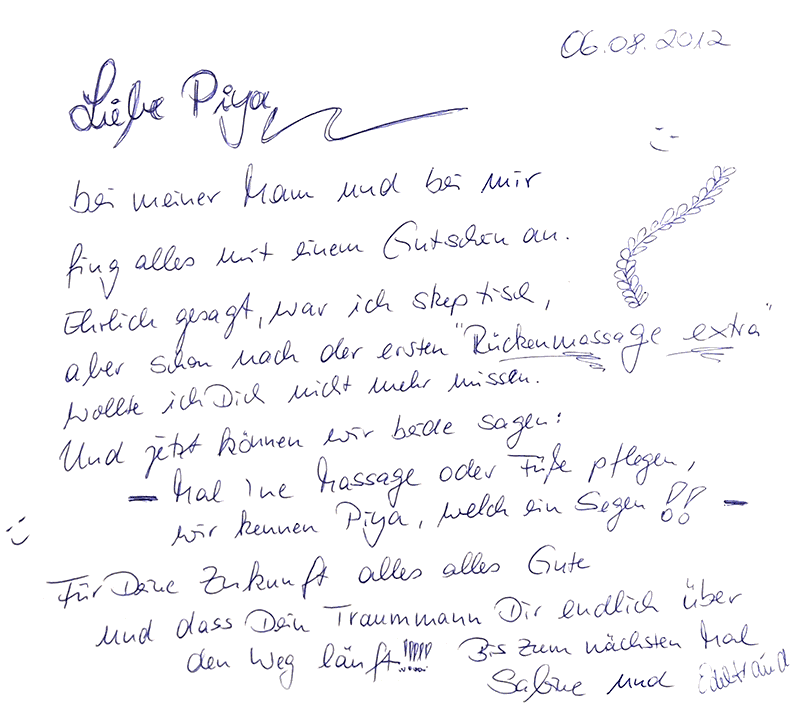 06.08.2012
Liebe Piya
bei meiner Mam und bei mir
fing alles mit einem Gutschein an.
Ehrlich gesagt, war ich skeptisch,
aber schon nach der ersten "Rückenmassage extra"
wollte ich Dich nicht mehr missen.
Und jetzt können wir beide sagen:
– Mal 'ne Massage oder Füße pflegen,
wir kennen Piya, welch ein Segen!! –
Für Deine Zukunft alles alles Gute
und dass Dein Traummann Dir endlich über
den Weg läuft!!!!! Bis zum nächsten Mal
Sabine und Edeltraud